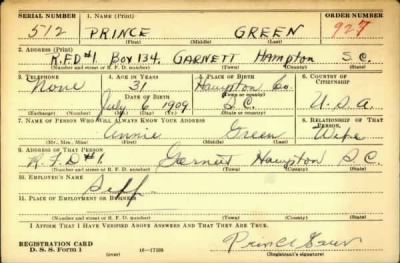 SERIAL NUMBER 1. NAME (Print) ORDER NUMBER
512 PRINCE GREEN 927
(First) (Middle) (Last)
2. ADDRESS (Print)
R.F.D #1. Box 134. GARNETT Hampton S.C.
(Number and street or R. F. D. number) (Town) (County) (State)
3. TELEPHONE 4. AGE IN YEARS 5. PLACE OF BIRTH 6. COUNTRY OF CITIZENSHIP
None 31 Hampton Co.
DATE OF BIRTH (Town) (County)
July 6 1909 S.C. U.S.A
(Exchange) (Number) (Mo.) (Day) (Yr.) (State or country)
7. NAME OF PERSON WHO WILL ALWAYS KNOW YOUR ADDRESS 8. RELATIONSHIP OF THAT PERSON
Annie Green Wife
(Mr., Mrs., Miss) (First) (Middle) (Last)
9. ADDRESS OF THAT PERSON
R.F.D #1. Garnett Hampton S.C.
(Number and street or R. F. D. number) (Town) (County) (State)
10. EMPLOYER'S NAME
Self
11. PLACE OF EMPLOYMENT OR BUSINESS
(Number and street or R. F. D. number) (Town) (County) (State)
I AFFIRM THAT I HAVE VERIFIED ABOVE ANSWERS AND THAT THEY ARE TRUE.
REGISTRATION CARD
D. S. S. Form 1 16—17105 Prince
(Registrant's signature)